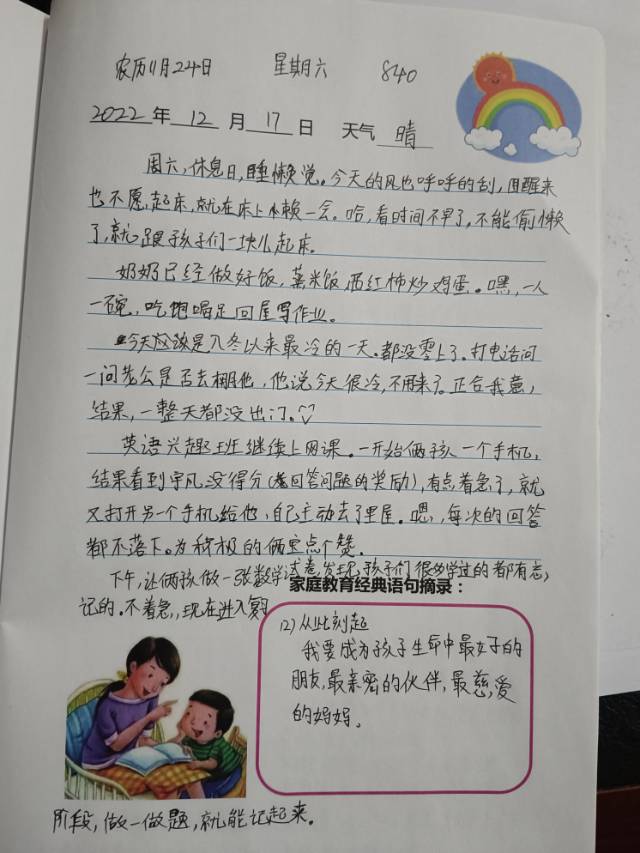 农历11月24日 星期六 840
2022年 12月 17日 天气 晴
周六,休息日,睡懒觉。今天的风也呼呼的刮,困醒来
也不愿起床,就在床上木赖一会。哈,看时间不早了,不能偷懒
了,就跟孩子们一块儿起床。
奶奶已经做好饭,蒸米饭西红柿炒鸡蛋。嘿,一人
一碗,吃饱喝足回屋写作业。
今天应该是入冬以来最冷的一天。都没零上了。打电话问
一问老公是否去棚他,他说今天很冷,不用来了。正合我意,
结果,一整天都没出门。
英语兴趣班继续上网课。一开始俩孩一个手机,
结果看到宇凡没得分(回答问题的奖励),有点着急了,就
又打开另一个手机给他,自己主动去了里屋。嗯,每次的回答
都不落下。为积极的俩宝点个赞。
下午,让俩孩做一张数学试卷,发现,孩子们很多学过的都有忘
记的。不着急,现在进入复习
家庭教育经典语句摘录:
12)从此刻起
我要成为孩子生命中最好的
朋友,最亲密的伙伴,最慈爱
的妈妈。
阶段,做一做题,就能记起来。